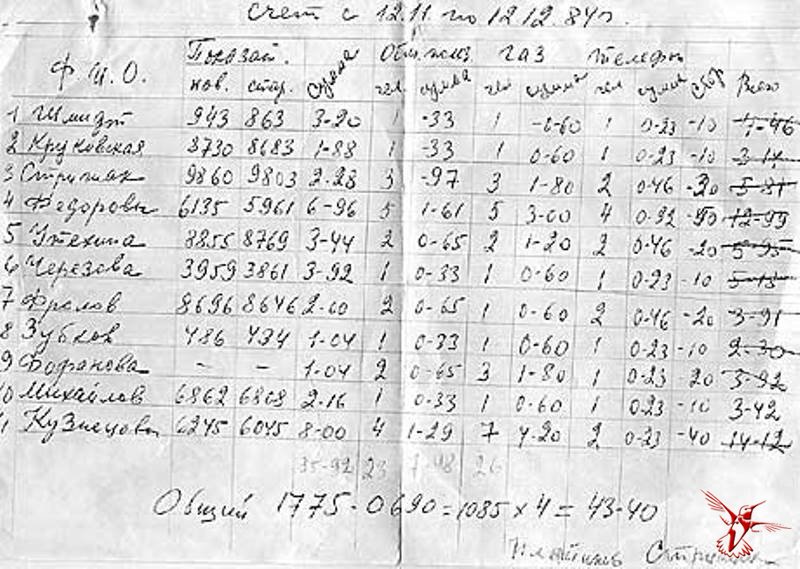 Счет с 12.11 по 12 12.84г.
Показат. Общ. польз. газ телефон
Ф. И. О. нов. стар. сумма чел. сумма чел сумма чел сумма Всего
1 Шмидт 943 863 3-20 1 -33 1 -0-60 1 0-23 -10
2 Круковская 8730 8683 1-88 1 -33 1 0-60 1 0-23 -10 3-14
3 Стрижак 9860 9803 2-28 3 -97 3 1-80 2 0-46 -30 5-81
4 Федоровы 6135 5961 6-96 5 1-61 5 3-00 4 0-92 -50 12-99
5 Утехина 8855 8769 3-44 2 0-65 2 1-20 2 0-46 -20 5-95
6 Черезова 3959 3861 3-92 1 0-33 1 0-60 1 0-23 -10
7 Фролов 8696 8646 2-00 2 0-65 1 0-60 2 0-46 -20 3-91
8 Зубков 486 434 1-04 1 0-33 1 0-60 1 0-23 -10 2-30
9 - - 1-04 2 0-65 3 1-80 1 0-23 -20 3-92
10 Михайлов 6862 6808 2-16 1 0-33 1 0-60 1 0-23 -10 3-42
11 Кузнецовы 6245 6045 8-00 4 1-29 7 4-20 2 0-23 -40 14-12
35-92 23 7-48 26
Общий 1775 - 0690 = 1085 х 4 = 43-40